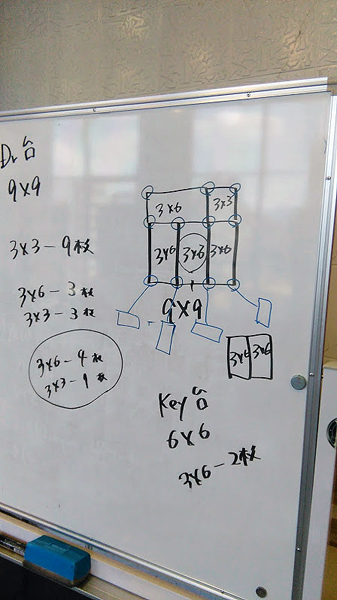 Dr台
9×9
3×3-9枚
3×6-3枚
3×3-3枚
3×6-4枚
3×3-1枚
3×6
3×3
3×6
3×6
3×6
9×9
3×6
3×6
Key台
6×6
3×6-2枚